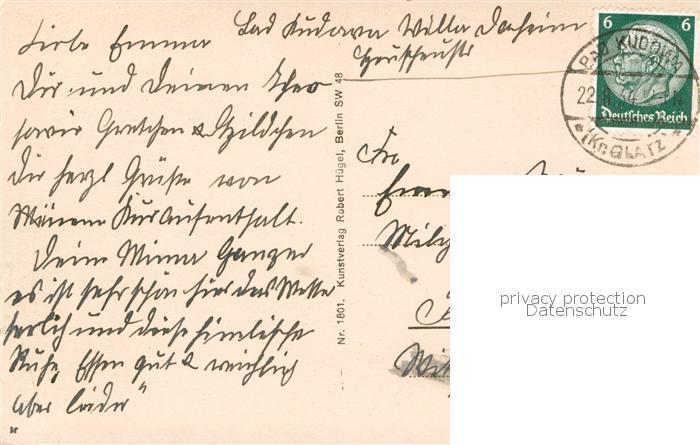 Bad Kudowa Villa Daheim
Liebe Emma
Dir und Deinen Theo
sowie Gretchen & Hildchen
die herzl Grüße von
Meinem Kuraufenthalt.
Deine Minna Ganzer
es ist sehr schön hier das Wetter
herlich und diese himlische
Ruhe, Essen gut & reichlich
aber leider"
"
Nr. 1801. Kunstverlag Robert Hügel, Berlin SW 48
6 6
Deutsches Reich
BAD KUDOWA
22.
(Kr. GLATZ)
Fr
privacy protection
Datenschutz